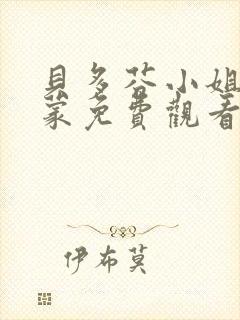 貝多芬小姐
蒙免費觀看
伊布莫